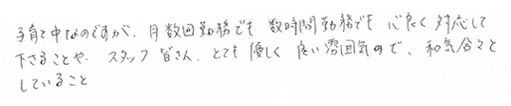 子育て中なのですが、月数回勤務でも数時間勤務でも心良く対応して
下さることや、スタッフ皆さん、とても優しく良い雰囲気ので、和気合々と
していること